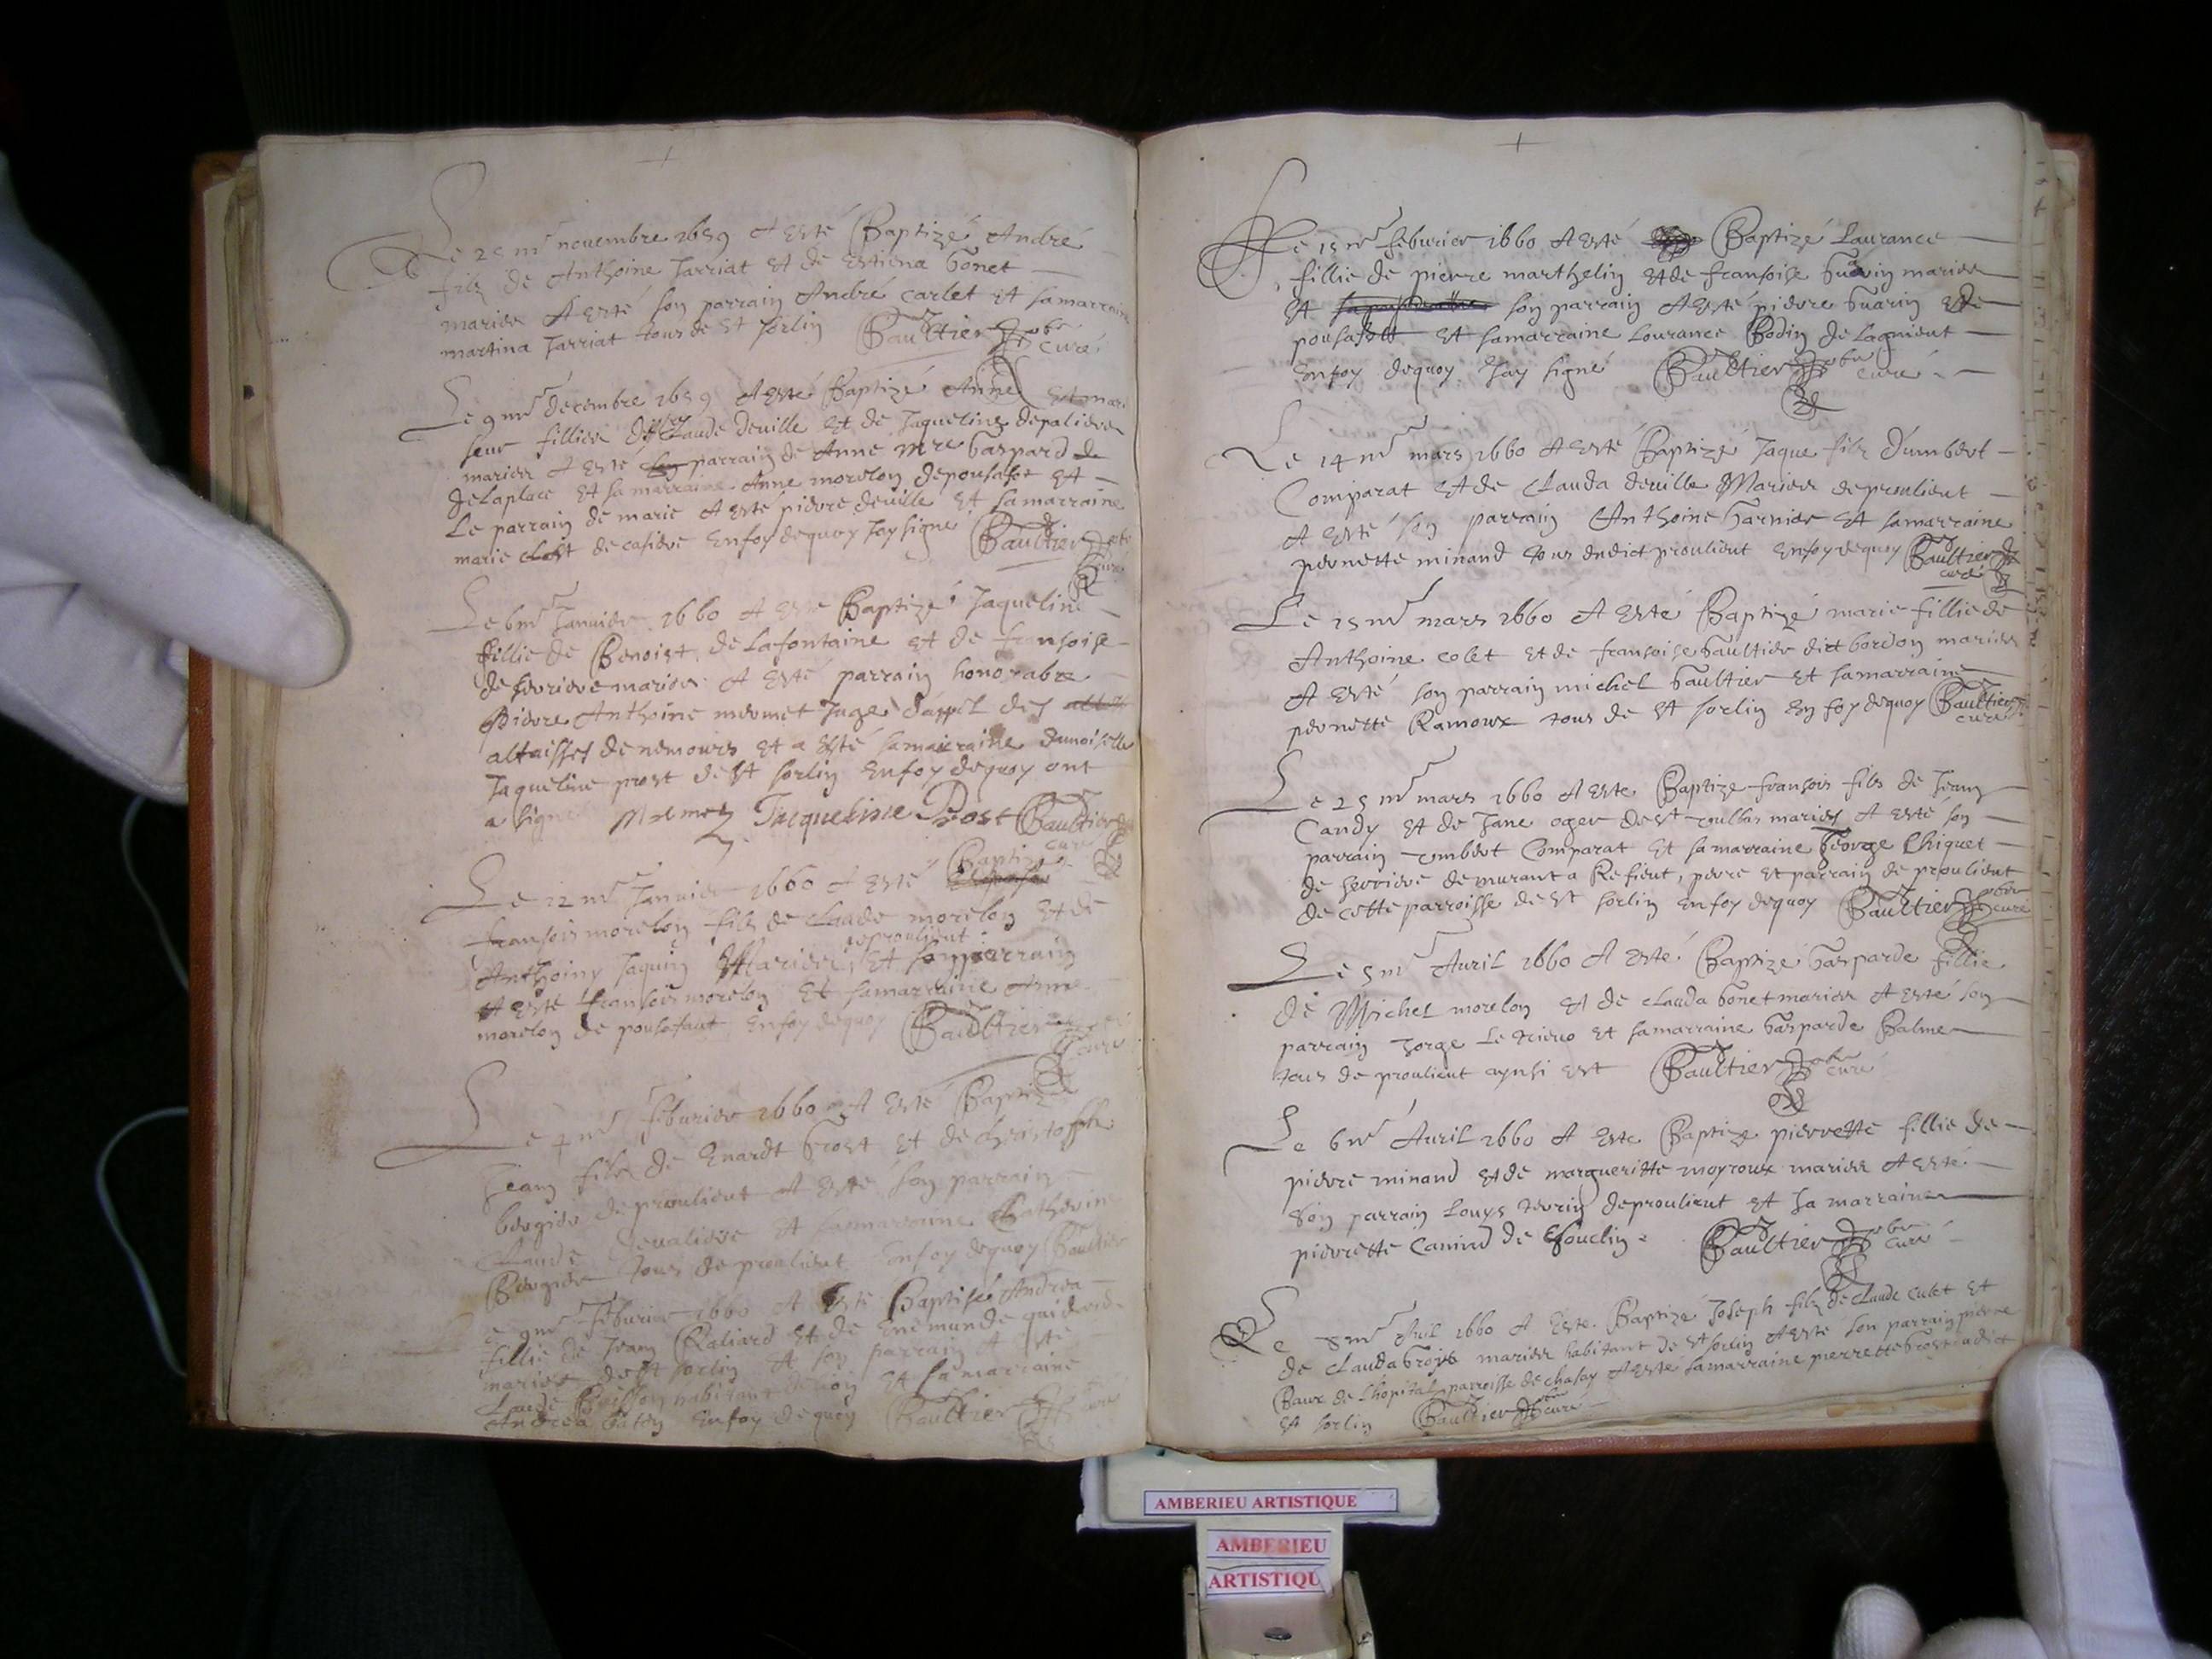 Le 25 me novembre 1659 A Esté Baptizé André
filz de Anthoine Jarriat Et de Estiena Gonet
mariés A Esté son parrain André Carlet Et sa marraine
martina Jarriat tous de St Sorlin Gaultier pbr
curé
Le 9 me decembre 1659 A Esté Baptizé Anne Et marie
seur filliés de Claude deville Et de Jaqueline depaliere
mariés A Esté parrain de Anne mre Gaspard de
de Laplace Et sa marraine Anne morelon de pousafolt Et
Le parrain de marie A Esté pierre deville Et sa marraine
marie de En foy de quoy Jay signé Gaultier pbr
curé
Le 6 me Janvier 1660 A Esté Baptizé Jaqueline
fillie de Benoist de Lafontaine et de fransoise
de serriere mariés A Esté parrain honorable
Pierre Anthoine mermet Juge d'appel des
altaisses de nemours et a Esté sa marraine damoiselle
Jaqueline prost de St Sorlin En foy de quoy ont
a signé Mermet Jacqueline Prost Gaultier
curé
Le 12 me Janvier 1660 A Esté Baptizé
fransois morelon filz de Claude morelon Et de
de proulieut
Anthoiny Jaquin Mariés Et son parrain
A Esté fransois morelon Et sa marraine Anne
morelon de pousafaut En foy de quoy Gaultier
curé
Le 4 me feburier 1660 A Esté Baptizé
Jean filz de Enardt Grost Et de Christophla
bergier de proulieut A Esté son parrain
Claude Et sa marraine Catherine
Bergier tous de proulieut En foy de quoy Gaultier
Le 9 me feburier 1660 A Esté Baptisé Andrea
fillie de Jean Raliard Et de Enemunde
mariés de St Sorlin Et son parrain A Esté
Claude Buisson habitant Et sa marraine
Andrea En foy de quoy Gaultier curé
Le 15 me feburier 1660 A Esté Baptizé Laurance
fillie de pierre marthelin Et de fransoise Guarin mariés
Et son parrain A Esté pierre Guarin de
pousafolt Et sa marraine Lourance Bodin de Lagnieut
En foy de quoy Jay signé Gaultier pbr
curé
Le 14 me mars 1660 A Esté Baptizé Jaque filz d'umbert
Comparat Et de Clauda deville Mariés de proulieut
A Esté son parrain Anthoine Garnier Et sa marraine
pernette minand tous dudict proulieut En foy de quoy Gaultier
curé
Le 15 me mars 1660 A Esté Baptizé marie fillie de
Anthoine colet Et de fransoise Gaultier dict bordon mariés
A Esté son parrain michel Gaultier Et sa marraine
pernette Ramoux tous de St Sorlin En foy de quoy Gaultier
curé
Le 25 me mars 1660 A Esté Baptize fransois filz de Jean
Candy Et de Jane oger de St mariés A Esté son
parrain Comparat Et sa marraine George Chiquet
de serriere demurant a Refieut, pere Et parrain de proulieut
de cette parroisse de St Sorlin En foy de quoy Gaultier pbr
curé
Le 5 me Auril 1660 A Esté Baptizé Gasparde fillie
de Michel morelon Et de Clauda Gonet mariés A Esté son
parrain Jorge Et sa marraine Gasparde Balme
tous de proulieut aynsi Est Gaultier pbr
curé
Le 6 me Auril 1660 A Esté Baptizé pierrette fillie de
pierre minand Et de margueritte moyroux mariés A Esté
son parrain Louys terrin de proulieut et sa marraine
pierrette Canind de Soucliu Gaultier pbr
curé
Le 8 me Auril 1660 A Esté Baptizé Joseph filz de Claude culet Et
de Clauda mariés habitant de St Sorlin A Esté son parrain pierre
Baux de Lhopital parroisse de chasay A Esté sa marraine pierrette Grost
St Sorlin Gaultier pbr curé
AMBERIEU ARTISTIQUE
AMBERIEU
ARTISTIQU